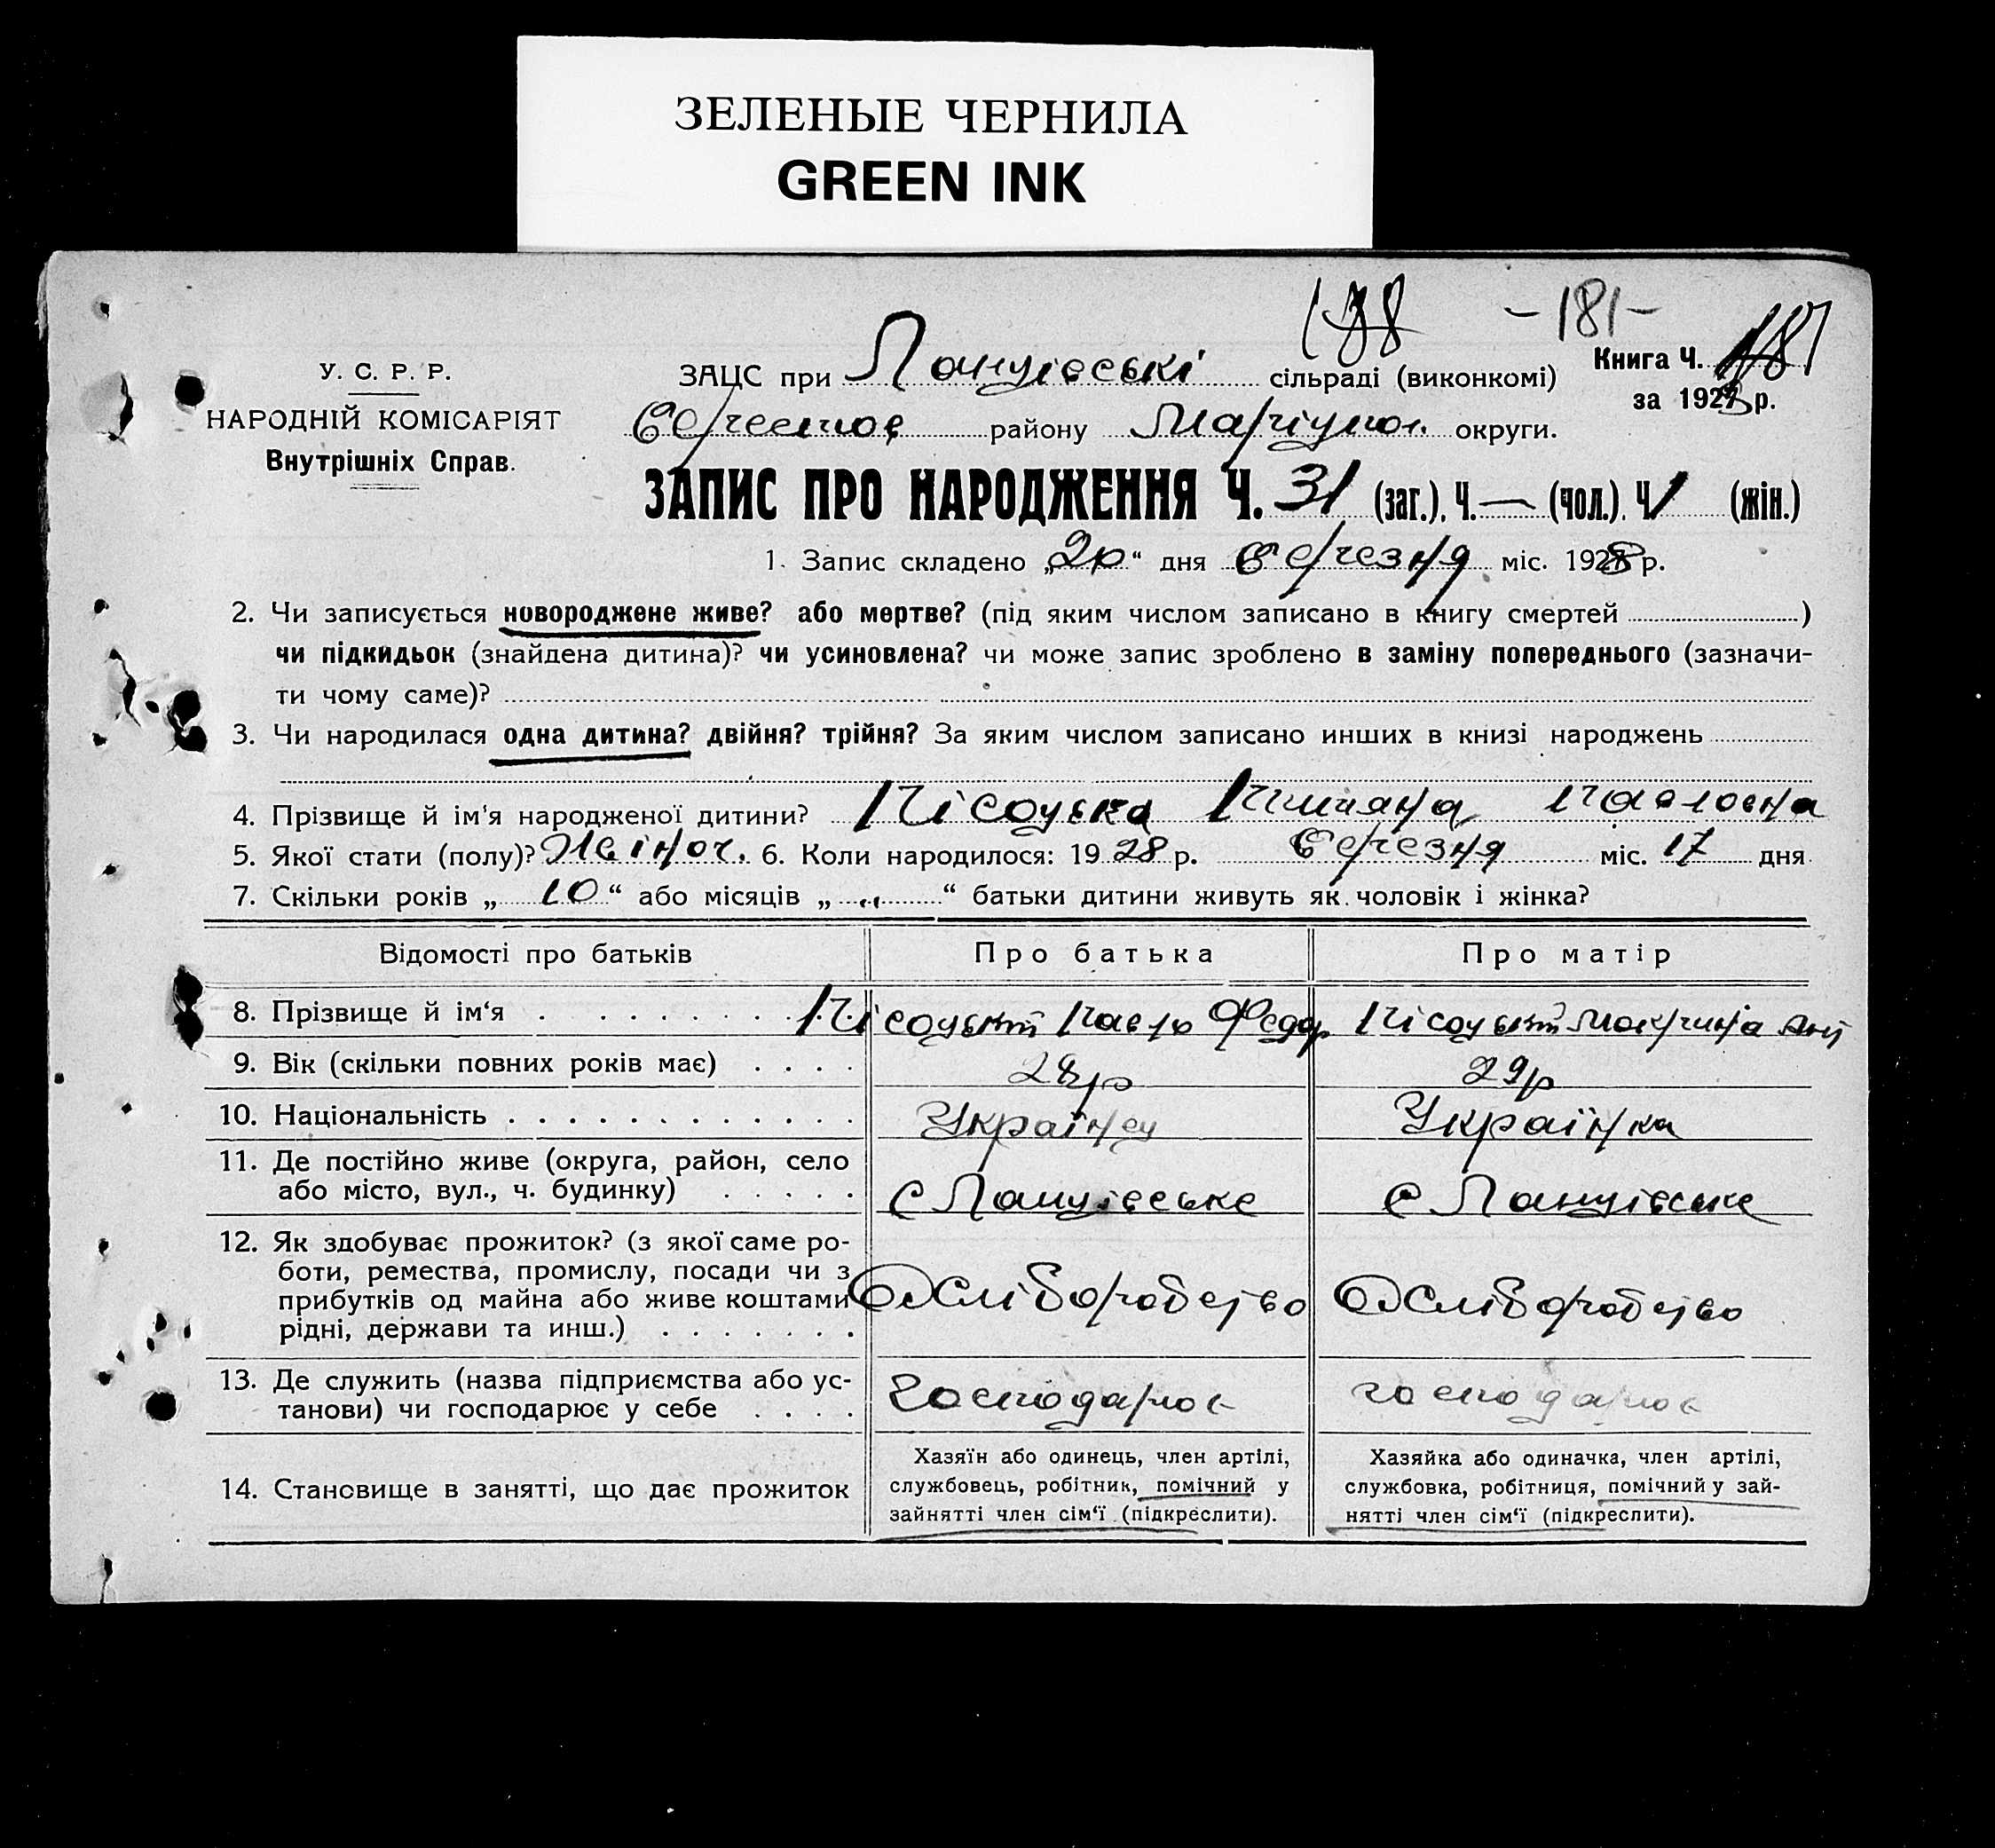 ЗЕЛЕНЫЕ ЧЕРНИЛА
GREEN INK
188 -181-
У. С. Р. Р.
НАРОДНІЙ КОМІСАРІЯТ
Внутрішніх Справ.
ЗАЦС при сільраді (виконкомі) Книга Ч. 181
за 1928 р.
району Маріупол. округи.
ЗАПИС ПРО НАРОДЖЕННЯ Ч. 31 (заг.), Ч. — (чол.). Ч. 1 (жін.)
1. Запис складено „20“ дня березня міс. 1928 р.
2. Чи записується новороджене живе? або мертве? (під яким числом записано в книгу смертей )
чи підкидьок (знайдена дитина)? чи усиновлена? чи може запис зроблено в заміну попереднього (зазначи-
ти чому саме)?
3. Чи народилася одна дитина? двійня? трійня? За яким числом записано инших в книзі народжень
4. Прізвище й ім'я народженої дитини? Павловна
5. Якої стати (полу)? Жіноч. 6. Коли народилося: 1928 р. березня міс. 17 дня.
7. Скільки років „10“ або місяців „ „ “ батьки дитини живуть як чоловік і жінка?
Відомості про батьків Про батька Про матір
8. Прізвище й ім‘я Павло Федор
9. Вік (скільки повних років має) 28р 29р
10. Національність Українец Українка
11. Де постійно живе (округа, район, село
або місто, вул., ч. будинку) с с
12. Як здобуває прожиток? (з якої саме ро-
боти, ремества, промислу, посади чи з
прибутків од майна або живе коштами
рідні, держави та инш.) Хліборобство Хліборобство
13. Де служить (назва підприємства або ус-
танови) чи господарює у себе господарює господарює
14. Становище в занятті, що дає прожиток
Хазяїн або одинець, член артілі,
службовець, робітник, помічний у
зайнятті член сім‘ї (підкреслити).
Хазяйка або одиначка, член артілі,
службовка, робітниця, помічний у зай-
нятті член сім‘ї (підкреслити).